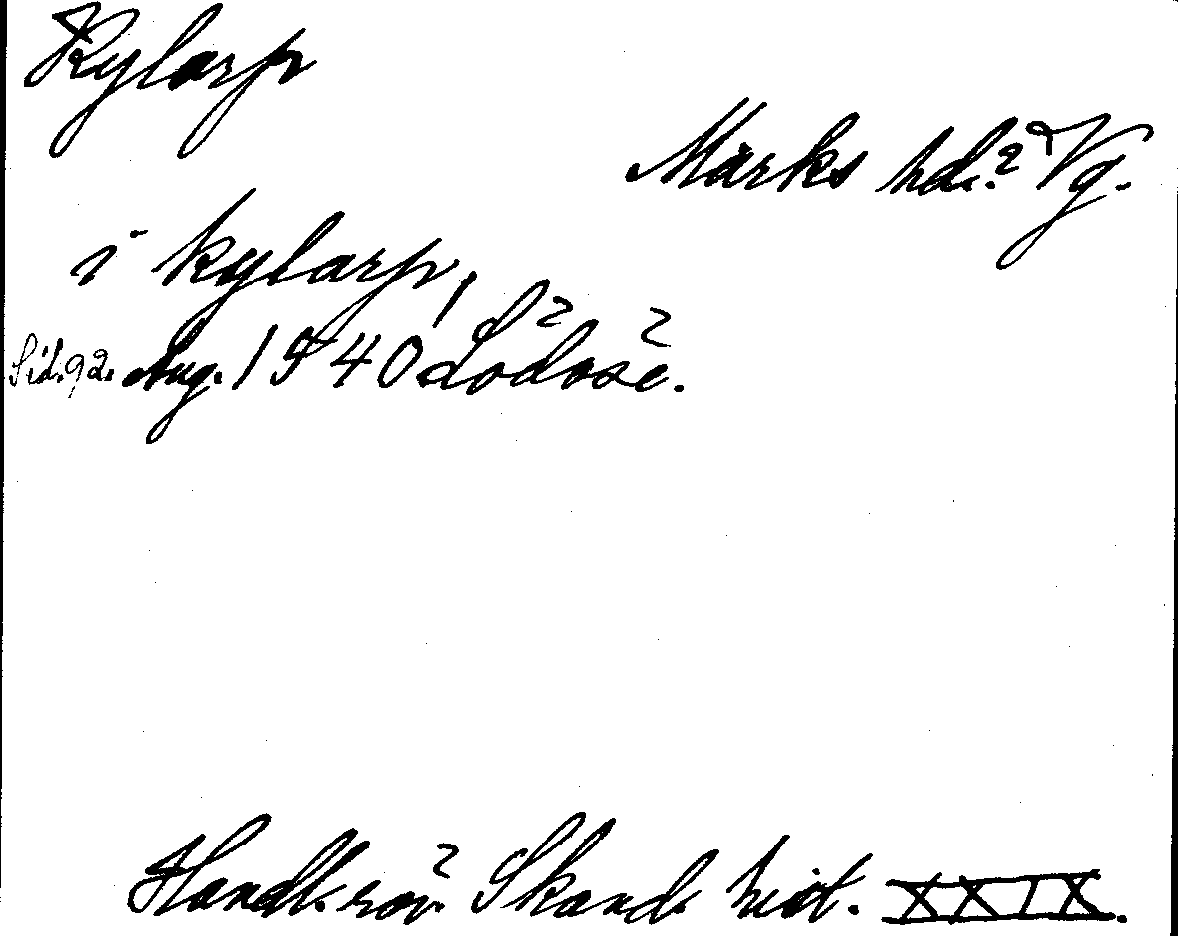 Kylarp
Marks hd.? Vg.
i kylarp,
Sid. 92. Aug. 1540 Lödöse.
Handl. rör. Skand. hist. XXIX.